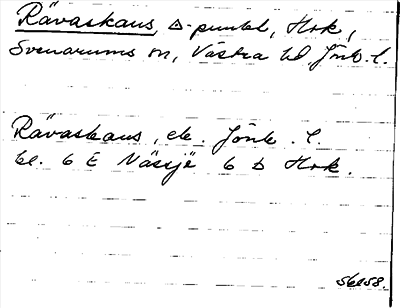 Rävaskans, Δ-punkt, Hok,
Svenarums sn, Västra hd Jönk. l.
Rävaskans, ek. Jönk. l.
bl. 6 E Nässjö 6 D Hok.